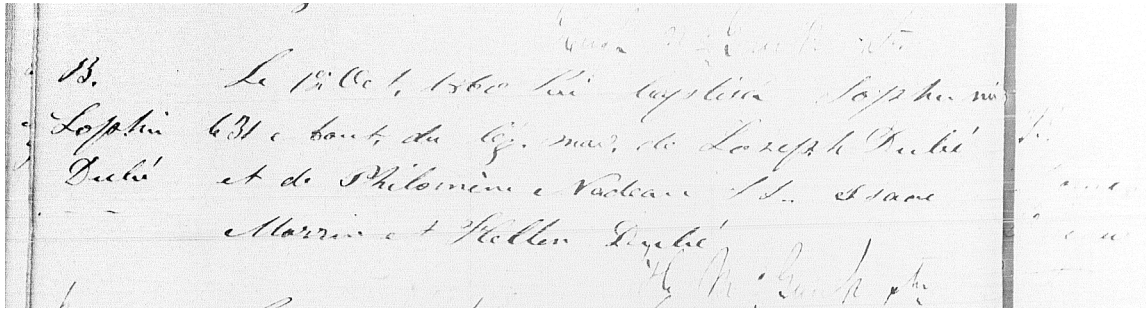 B.
Sophie
Dubé
Le 12 Oct. 1860 J'ai baptisé Sophie née
le 31 e Aout, du lég. mar. de Joseph Dubé
et de Philomène Nadeau SS. Isaac
Morrin et Hellen Dubé